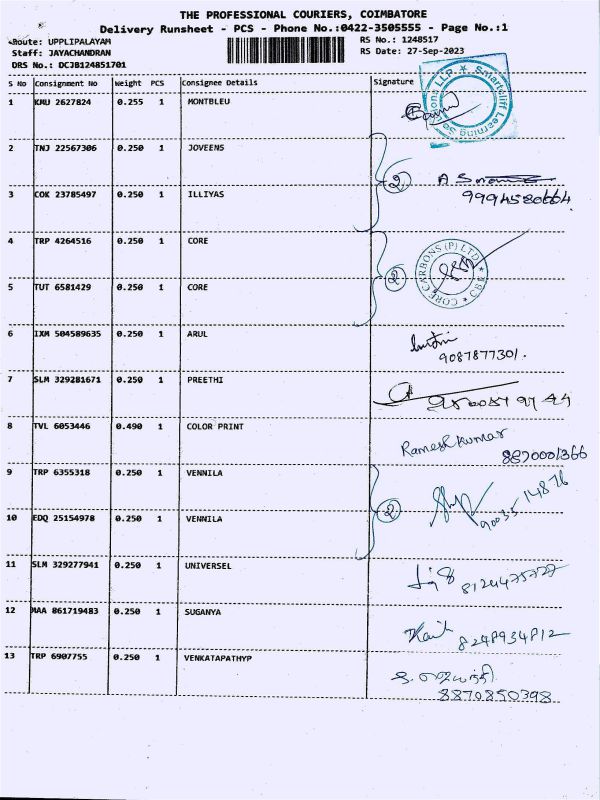 THE PROFESSIONAL COURIERS, COIMBATORE
Delivery Runsheet - PCS - Phone No.:0422-3505555 - Page No.:1
Route: UPPLIPALAYAM
RS No.: 1248517
Staff: JAYACHANDRAN
RS Date: 27-Sep-2023
DRS No.: DCJB124851701
S No Consignment No Weight PCS Consignee Details Signature
1 KMU 2627824 0.255 1 MONTBLEU
Smartcliff Learning Solutions LLP
2 TNJ 22567306 0.250 1 JOVEENS
2
3 COK 23785497 0.250 1 ILLIYAS
9994580664
4 TRP 4264516 0.250 1 CORE
CORE CARBONS (P) LTD CBE
2
5 TUT 6581429 0.250 1 CORE
6 IXM 504589635 0.250 1 ARUL
9087877301.
7 SLM 329281671 0.250 1 PREETHI
8 TVL 6053446 0.490 1 COLOR PRINT
Rameshkumar
8870001366
9 TRP 6355318 0.250 1 VENNILA
90035 14876
2
10 EDQ 25154978 0.250 1 VENNILA
11 SLM 329277941 0.250 1 UNIVERSEL
8124475727
12 MAA 861719483 0.250 1 SUGANYA
8248934812
13 TRP 6907755 0.250 1 VENKATAPATHYP
8870850398